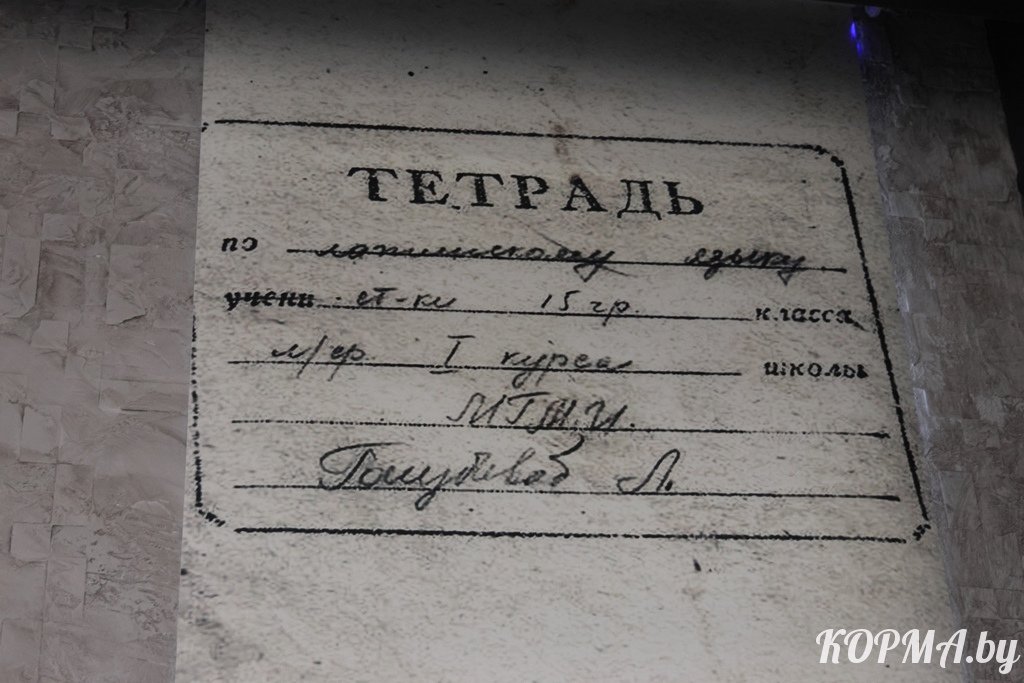 ТЕТРАДЬ
по латинскому языку
учени ст-ки 15 гр. класса
I курса школы
Голубевой Л.
КОРМА.by